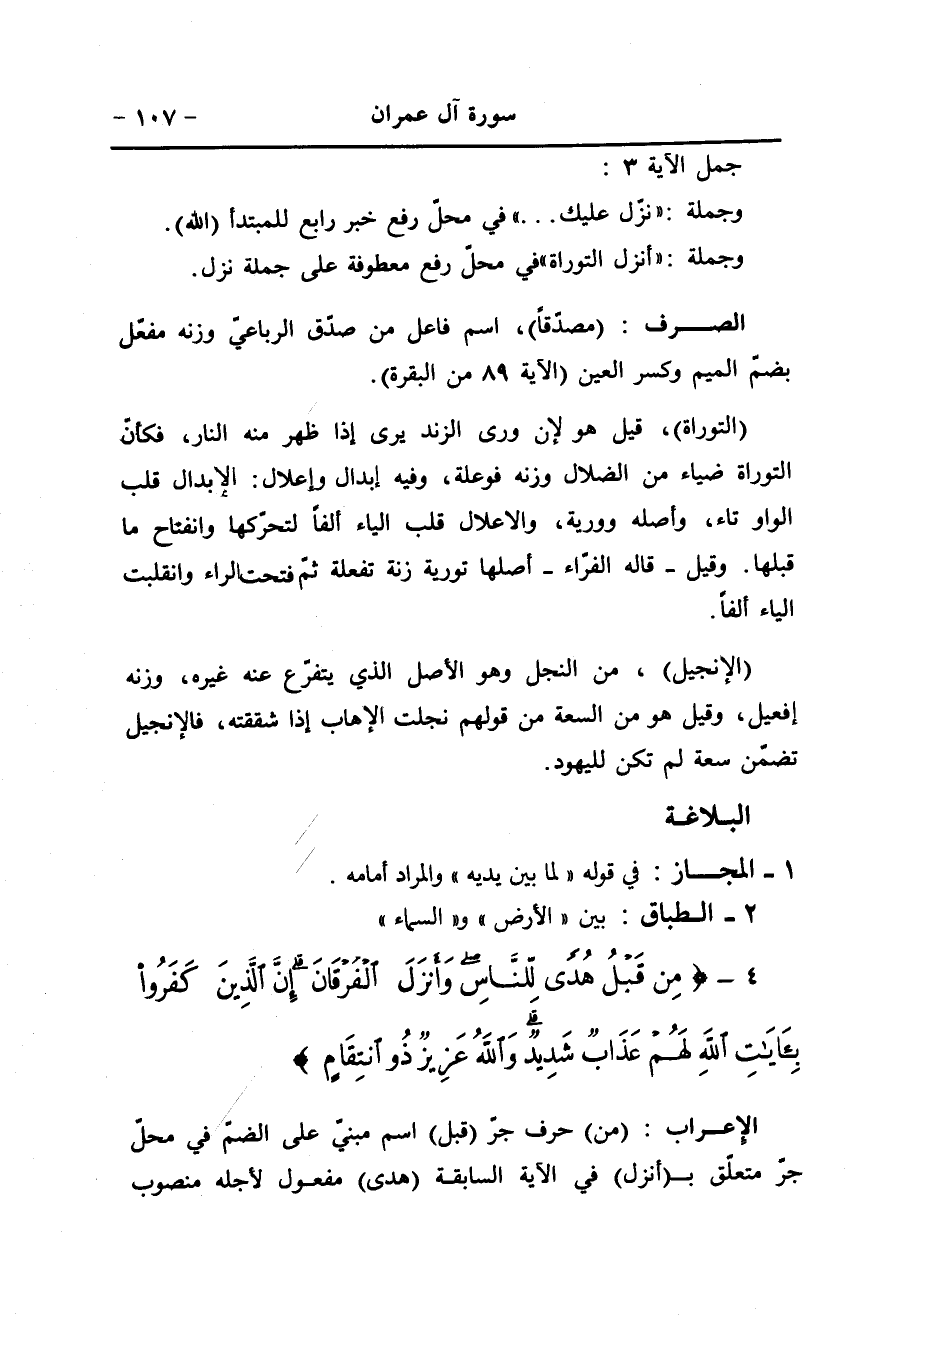 سورة آل عمران - ١٠٧ -
جمل الآية ٣ :
وجملة :«نزّل عليك. . .» في محلّ رفع خبر رابع للمبتدأ (الله).
وجملة :«أنزل التوراة»في محلّ رفع معطوفة على جملة نزل.
الصـــرف : (مصدّقاً)، اسم فاعل من صدّق الرباعيّ وزنه مفعّل
بضمّ الميم وكسر العين (الآية ٨٩ من البقرة).
(التوراة)، قيل هو لإن ورى الزند يرى إذا ظهر منه النار، فكأنّ
التوراة ضياء من الضلال وزنه فوعلة، وفيه إبدال وإعلال: الإبدال قلب
الواو تاء، وأصله وورية، والاعلال قلب الياء ألفاً لتحرّكها وانفتاح ما
قبلها. وقيل ـ قاله الفرّاء ـ أصلها تورية زنة تفعلة ثمّ فتحت الراء وانقلبت
الياء ألفاً.
(الإنجيل) ، من النجل وهو الأصل الذي يتفرّع عنه غيره، وزنه
إفعيل، وقيل هو من السعة من قولهم نجلت الإهاب إذا شققته، فالإنجيل
تضمّن سعة لم تكن لليهود.
البـلاغـة
١ ـ المجـــاز : في قوله « لما بين يديه » والمراد أمامه .
٢ ـ الـطباق : بين « الأرض » و« السماء »
٤ ـ ﴿ مِن قَبْلُ هُدًى لِّلنَّاسِ ۖ وَأَنزَلَ ٱلْفُرْقَانَ ۗ إِنَّ ٱلَّذِينَ كَفَرُوا۟
بِـَٔايَـٰتِ ٱللَّهِ لَهُمْ عَذَابٌ شَدِيدٌ ۗ وَٱللَّهُ عَزِيزٌ ذُو ٱنتِقَامٍ ﴾
الإعـــراب : (من) حرف جرّ (قبل) اسم مبنيّ على الضمّ في محلّ
جرّ متعلّق بـ(أنزل) في الآية السابقـة (هدى) مفعـول لأجله منصوب